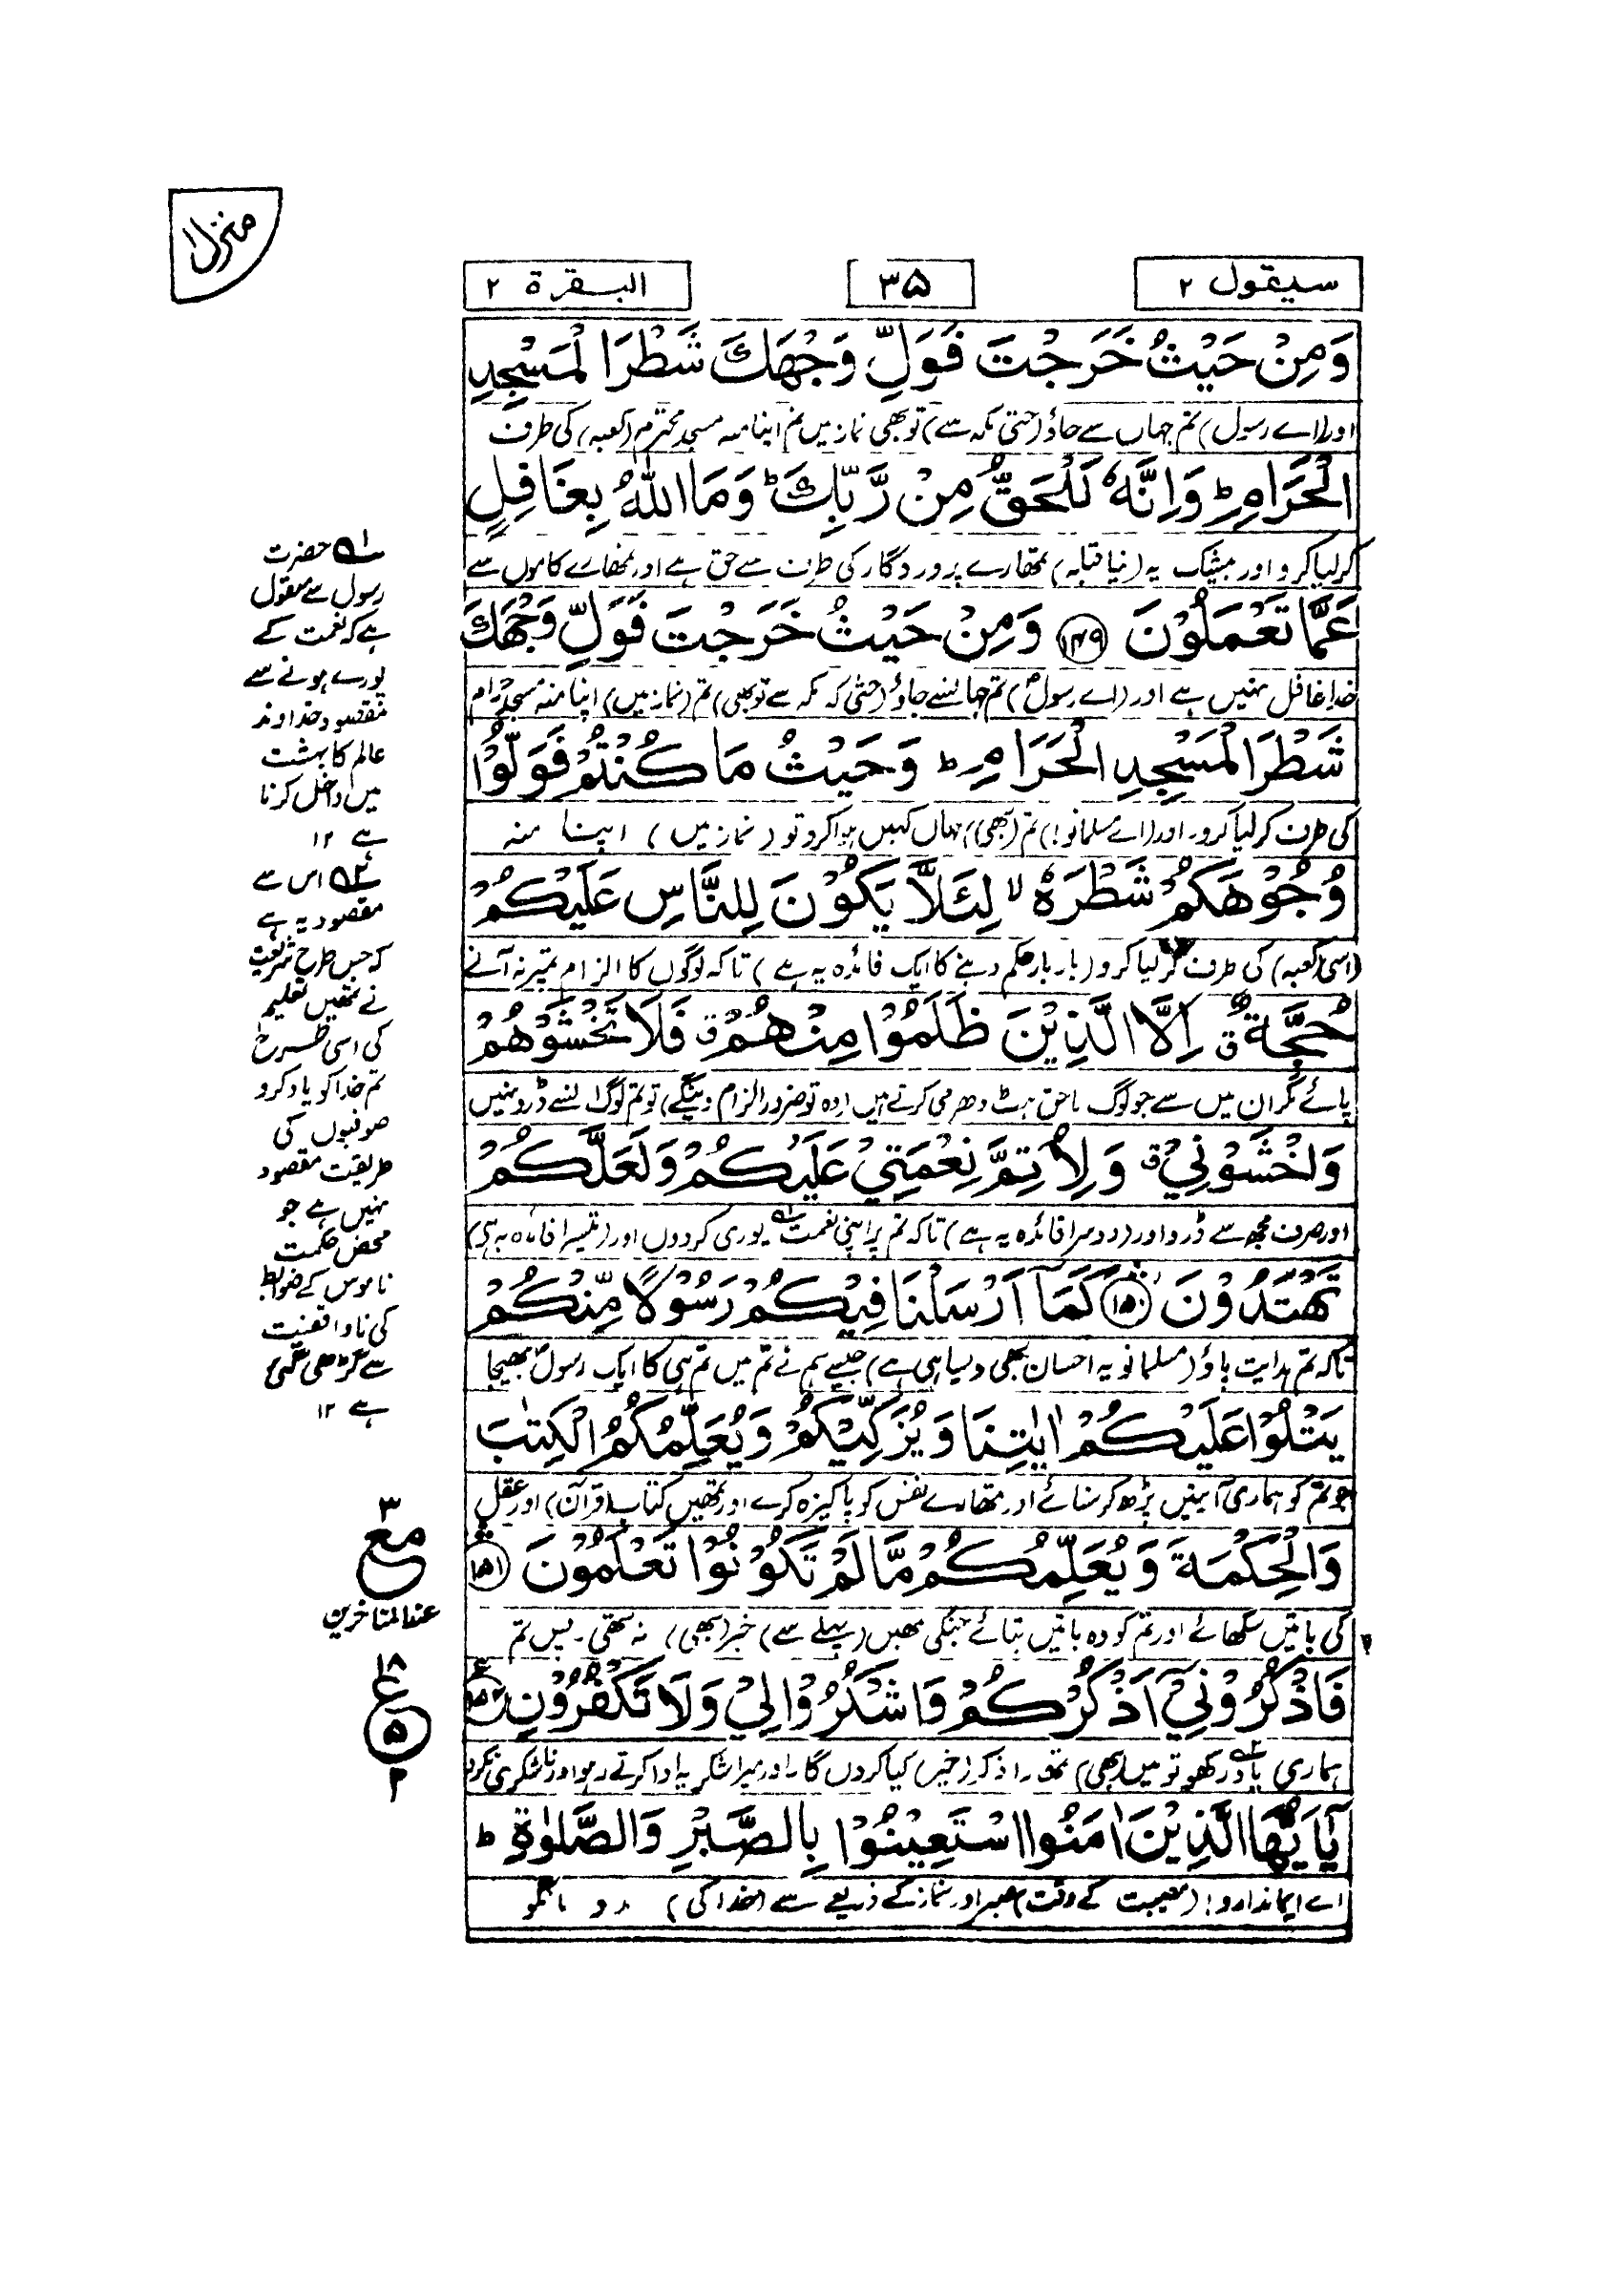 منزل ۱
سیقول ۲
۳۵
البقرة ۲
وَمِنْ حَيْثُ خَرَجْتَ فَوَلِّ وَجْهَكَ شَطْرَ الْمَسْجِدِ
اور (اے رسول) تم جہاں سے جاؤ (حتی مکہ سے) تو بھی نماز میں تم اپنا منہ مسجد محترم (کعبہ) کی طرف
الْحَرَامِ ؕ وَاِنَّهٗ لَلْحَقُّ مِنْ رَّبِّكَ ؕ وَمَا اللّٰهُ بِغَافِلٍ
کر لیا کرو اور بیشک یہ (نیا قبلہ) تمھارے پروردگار کی طرف سے حق ہے اور تمھارے کاموں سے
عَمَّا تَعْمَلُوْنَ ۱۴۹ وَمِنْ حَيْثُ خَرَجْتَ فَوَلِّ وَجْهَكَ
خدا غافل نہیں ہے اور (اے رسولؐ) تم جہاں سے جاؤ (حتیٰ کہ مکہ سے تو بھی) تم (نماز میں) اپنا منہ مسجد حرام
شَطْرَ الْمَسْجِدِ الْحَرَامِ ؕ وَحَيْثُ مَا كُنْتُمْ فَوَلُّوْا
کی طرف کر لیا کرو۔ اور (اے مسلمانو!) تم (بھی) جہاں کہیں ہوا کرو تو (نماز میں) اپنا منہ
وُجُوْهَكُمْ شَطْرَهٗ ۙ لِئَلَّا يَكُوْنَ لِلنَّاسِ عَلَيْكُمْ
(اسی کعبہ) کی طرف کر لیا کرو (بار بار حکم دینے کا ایک فائدہ یہ ہے) تاکہ لوگوں کا الزام تم پر نہ آنے
حُجَّةٌ ۗ اِلَّا الَّذِيْنَ ظَلَمُوْا مِنْهُمْ ۗ فَلَا تَخْشَوْهُمْ
پائے مگر ان میں سے جو لوگ ناحق ہٹ دھرمی کرتے ہیں (وہ تو ضرور الزام دینگے) تو تم لوگ ان سے ڈرو نہیں
وَاخْشَوْنِيْ ۗ وَلِاُتِمَّ نِعْمَتِيْ عَلَيْكُمْ وَلَعَلَّكُمْ
اور صرف مجھ سے ڈرو اور (دوسرا فائدہ یہ ہے) تاکہ تم پر اپنی نعمت ۱؎ پوری کردوں اور (تیسرا فائدہ یہ ہی)
تَهْتَدُوْنَ ۱۵۰ كَمَآ اَرْسَلْنَا فِيْكُمْ رَسُوْلًا مِّنْكُمْ
تاکہ تم ہدایت پاؤ (مسلمانو یہ احسان بھی ویسا ہی ہے) جیسے ہم نے تم میں تم ہی کا ایک رسولؐ بھیجا
يَتْلُوْا عَلَيْكُمْ اٰيٰتِنَا وَيُزَكِّيْكُمْ وَيُعَلِّمُكُمُ الْكِتٰبَ
جو تم کو ہماری آیتیں پڑھ کر سنائے اور تمھارے نفس کو پاکیزہ کرے اور تمھیں کتاب (قرآن) اور عقل
وَالْحِكْمَةَ وَيُعَلِّمُكُمْ مَّا لَمْ تَكُوْنُوْا تَعْلَمُوْنَ ۱۵۱
کی باتیں سکھائے اور تم کو وہ باتیں بتائے جنکی تمھیں (پہلے سے) خبر (بھی) نہ تھی۔ پس تم
فَاذْكُرُوْنِيْٓ اَذْكُرْكُمْ وَاشْكُرُوْا لِيْ وَلَا تَكْفُرُوْنِ ۱۵۲
ہماری یاد ۲؎ رکھو تو میں (بھی) تمھارا ذکر (خیر) کیا کروں گا۔ اور میرا شکریہ ادا کرتے رہو اور ناشکری نہ کرو
يٰٓاَيُّهَا الَّذِيْنَ اٰمَنُوا اسْتَعِيْنُوْا بِالصَّبْرِ وَالصَّلٰوةِ ؕ
اے ایماندارو! (مصیبت کے وقت) صبر اور نماز کے ذریعے سے (خدا کی) مدد مانگو
۱؎ حضرت
رسول سے منقول
ہے کہ نعمت کے
پورے ہونے سے
مقصود خداوند
عالم کا بہشت
میں داخل کرنا
ہے ۱۲
۲؎ اس سے
مقصود یہ ہے
کہ جس طرح شریعت
نے تمھیں تعلیم
کی اسی طرح
تم خدا کو یاد کرو
صوفیوں کی
طریقت مقصود
نہیں ہے جو
محض حکمت
ناموس کے ضوابط
کی ناواقفیت
سے گڑھی گئی
ہے ۱۲
۳
مع
عند المتاخرین
۱۸
ع
۵
۲